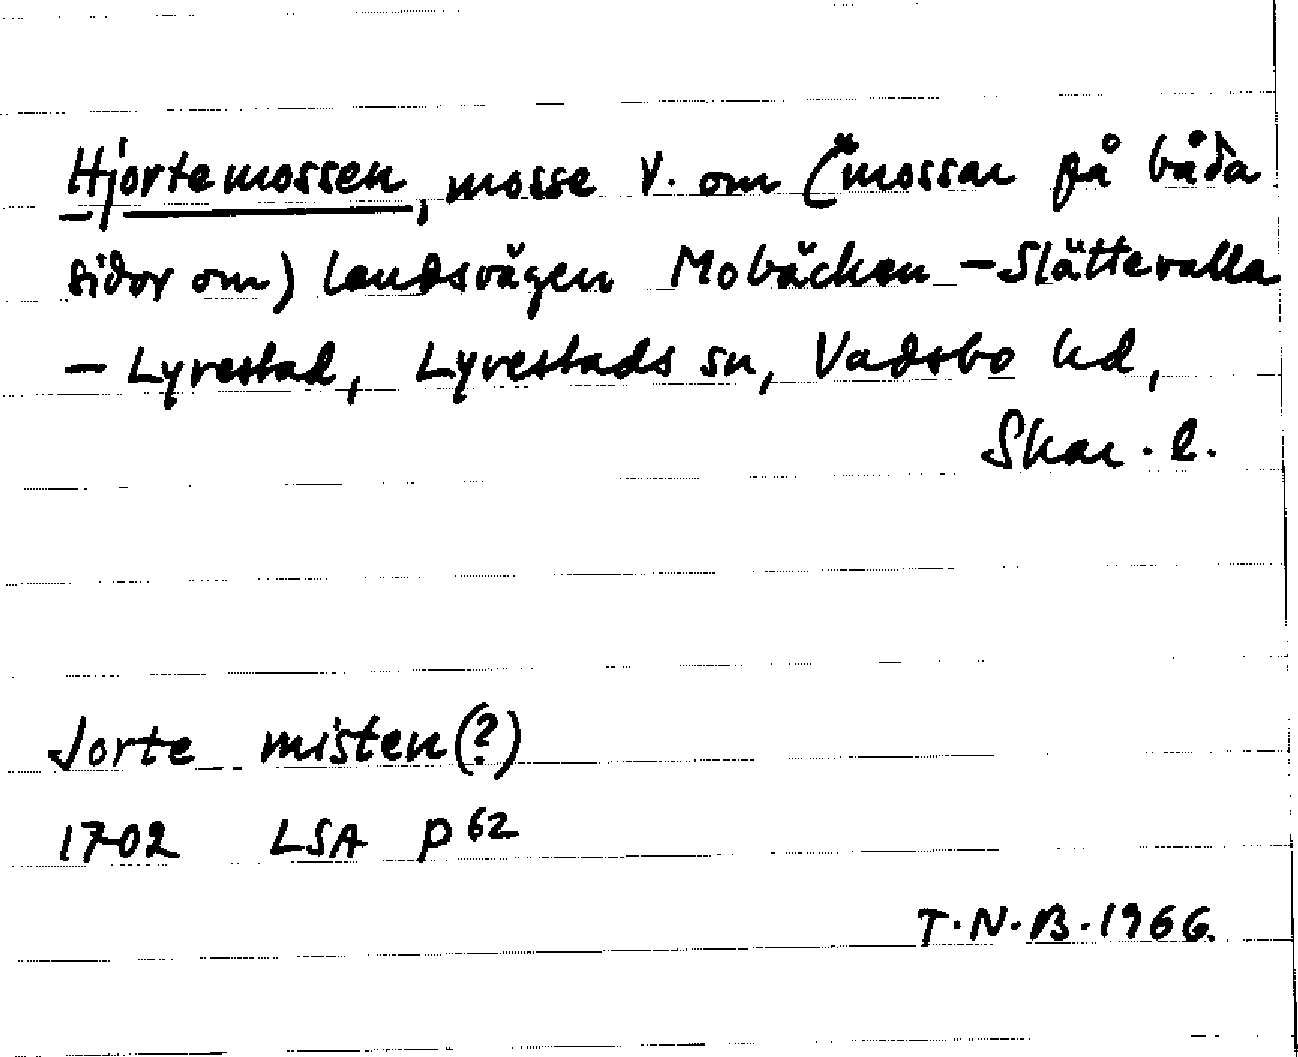 Hjortemossen, mosse V. om ("mossar på båda
sidor om) landsvägen Mobäcken - Slättevalla
- Lyrestad, Lyrestads sn, Vadsbo hd,
Skar. l.
Jorte misten (?)
1702 LSA P 62
T.N.B. 1966.